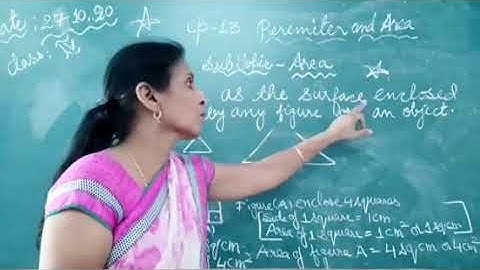 ate: 27.10.20
LP-13 Peremiter and Area
class: V
Subtobic - Area
as the surface enclosed
by any figure an object.
Figure(A) enclose 4 squares
side of 1 square = 1cm
Area of 1 square = 1cm² or 1sqcm
Area of figure A = 4 sqcm or 4cm²